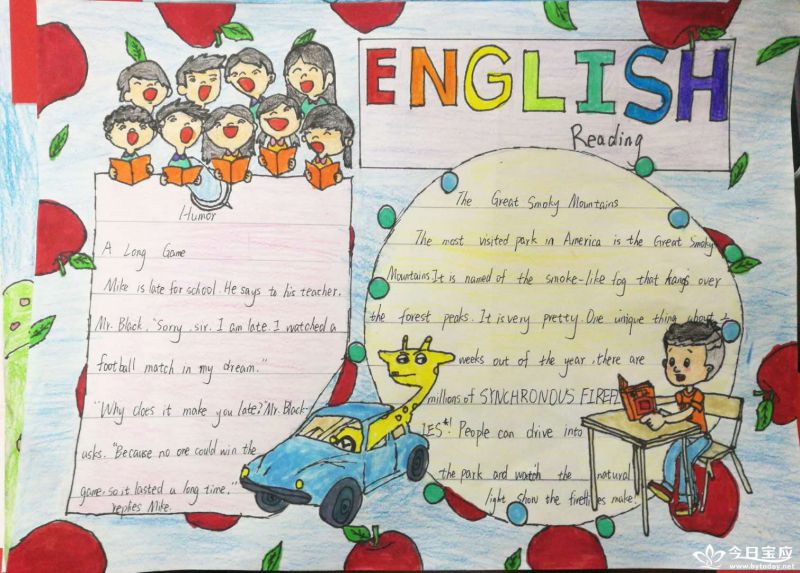 ENGLISH
Reading
Humor
A Long Game
Mike is late for school. He says to his teacher,
Mr. Black, "Sorry, sir. I am late. I watched a
football match in my dream."
"Why does it make you late?" Mr. Black
asks. "Because no one could win the
game, so it lasted a long time,"
replies Mike.
The Great Smoky Mountains
The most visited park in America is the Great Smoky
Mountains. It is named of the smoke-like fog that hangs over
the forest peaks. It is very pretty. One unique thing about 2
weeks out of the year, there are
millions of SYNCHRONOUS FIREFL
IES*! People can drive into
the park and watch the natural
light show the fireflies make!
今日宝应
www.bytoday.net